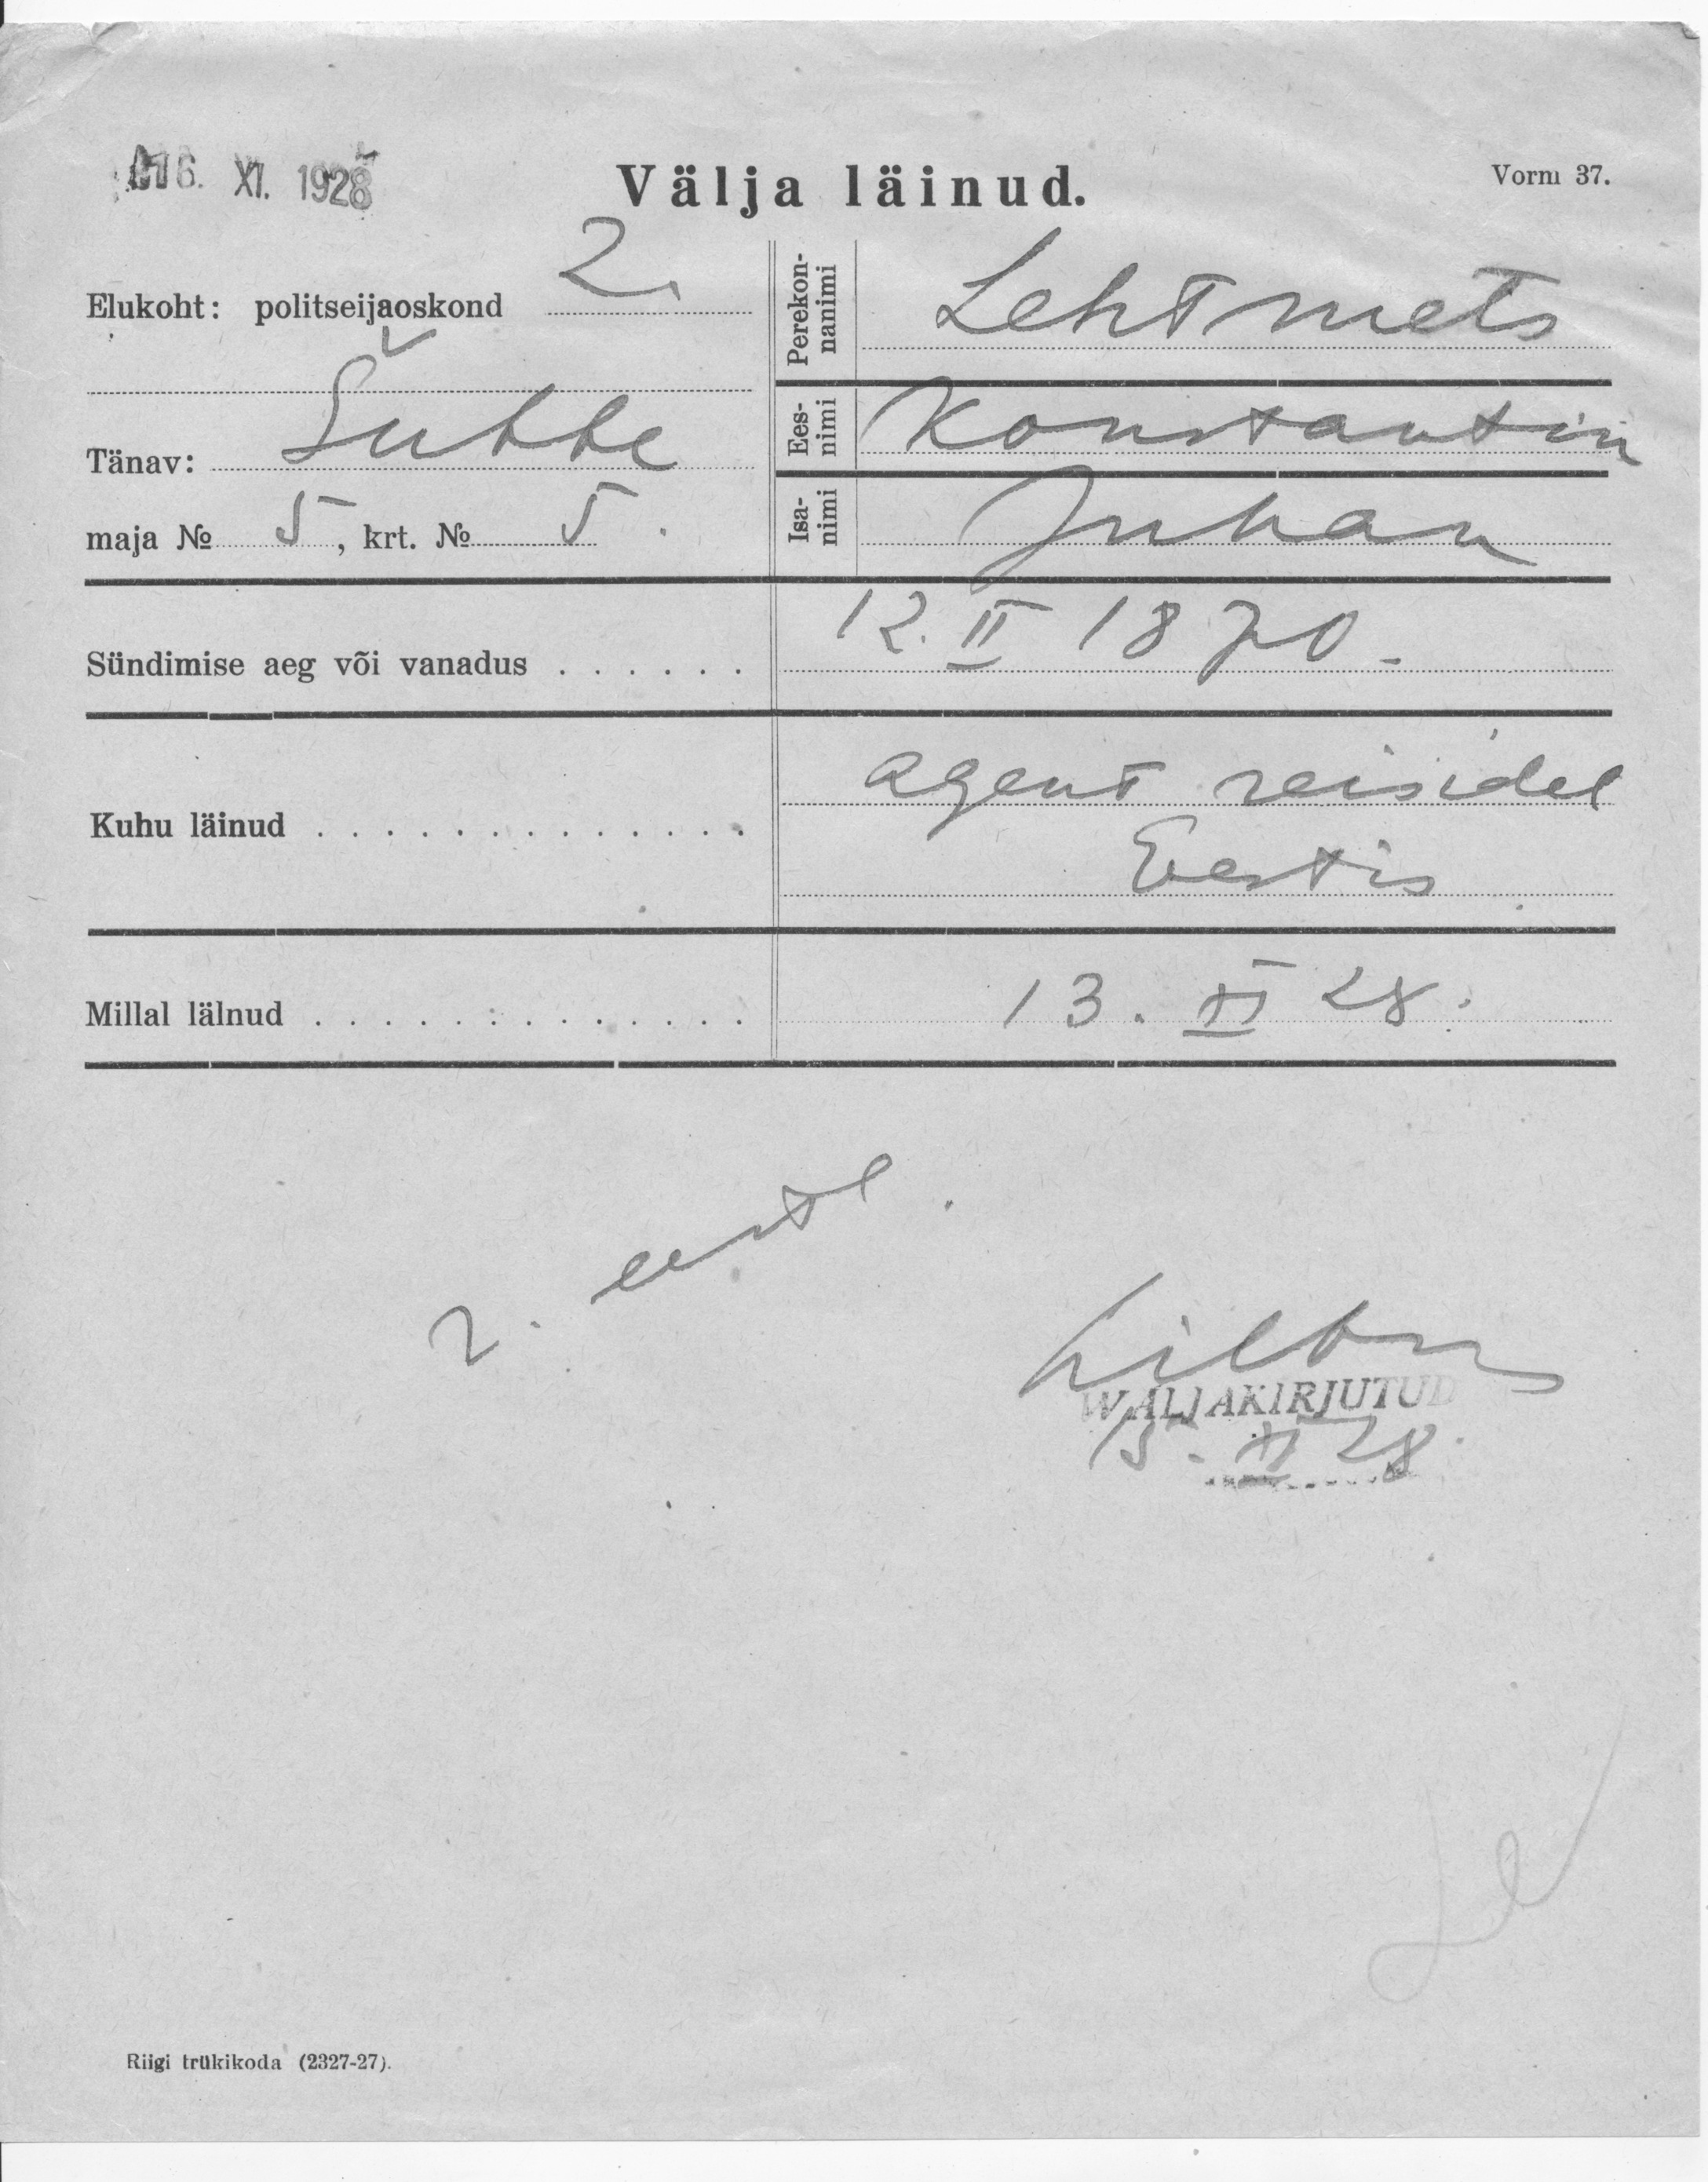 16. XI. 1928
Välja läinud.
Vorm 37.
Elukoht: politseijaoskond 2.
Tänav:
maja № 5, krt. № 5.
Perekon-
nanimi
Lehtmets
Ees-
nimi
Konstantin
Isa-
nimi
Juhan
Sündimise aeg või vanadus . . . . . . 12. II 1870.
Kuhu läinud . . . . . . . . . . . . . agent reisidel
Eestis
Millal läinud . . . . . . . . . . . . . 13. XI 28.
2. eest.
WÄLJAKIRJUTUD
15. XI 28.
Riigi trükikoda (2327-27).